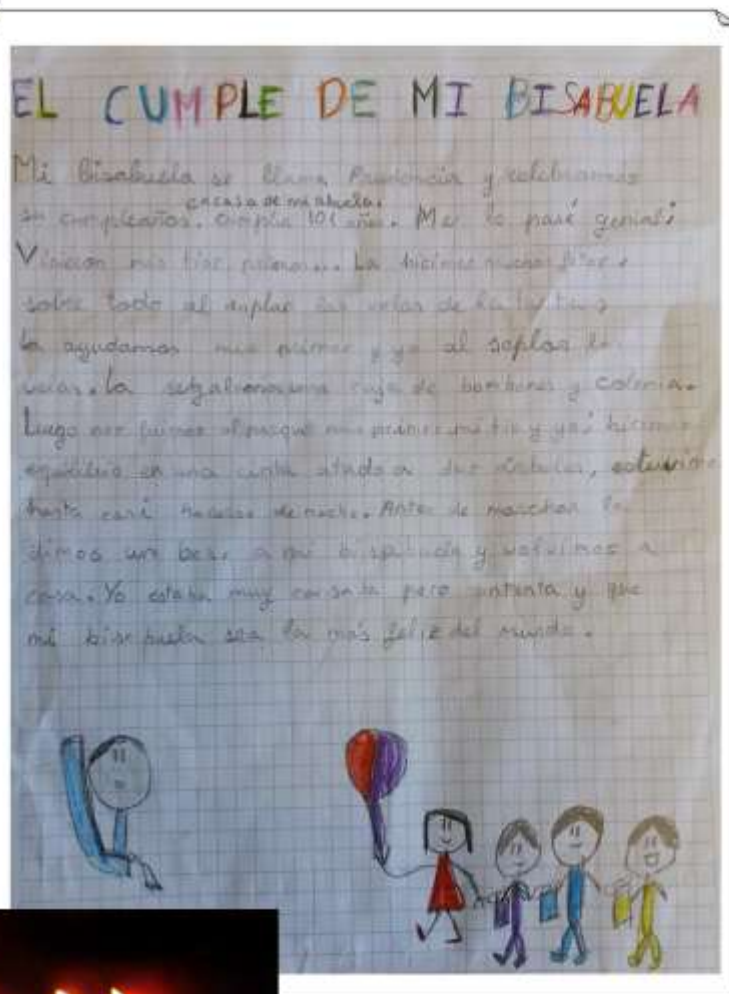 EL CUMPLE DE MI BISABUELA
Mi bisabuela se llama Prudencia y celebramos
en casa de mi abuela.
su cumpleaños. Cumplía 101 años. Me lo pasé genial:
Vinieron mis tíos, primos... La hicimos muchas fotos
sobre todo al soplar las velas de la tarta y
la ayudamos mis primos y yo al soplar las
velas. La regalamos una caja de bombones y colonia.
Luego nos fuimos al parque mis primos mi tío y yo, hicimos
equilibrio en una cinta atada a dos árboles, estuvimos
hasta casi hacerse de noche. Antes de marchar la
dimos un beso a mi bisabuela y volvimos a
casa. Yo estaba muy cansada pero contenta y que
mi bisabuela sea la más feliz del mundo.